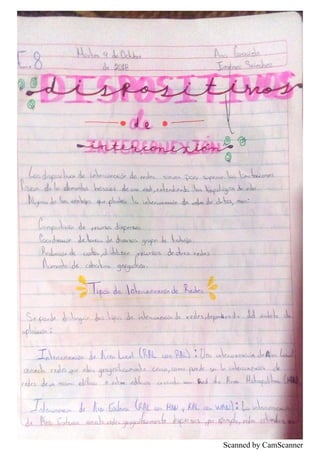 Martes 9 de Octubre
de 2018
Tema 8
DISPOSITIVOS
dispositivos
de
INTERCONEXIÓN
interconexión
Los dispositivos de interconexión de redes sirven para superar las limitaciones
físicas de los elementos básicos de una red, extendiendo las topologías de
Algunas de las ventajas que plantea la interconexión de redes de datos, son:
Compartición de recursos dispersos.
Coordinación de tareas de diversos grupos de trabajo.
Reducción de costos, al utilizar recursos de otras redes
Aumento de cobertura geográfica.
Tipos de Interconexión de Redes
Se puede distinguir dos tipos de interconexión de redes, dependiendo del ámbito de
aplicación:
Interconexión de Área Local (RAL con RAL): Una interconexión de Área Local
conecta redes que están geográficamente cerca, como puede ser la interconexión de
redes de un mismo edificio o entre edificios, creando una Red de Área Metropolitana (MAN)
Interconexión de Área Extensa (RAL con MAN y RAL con WAN): La interconexión
de Área Extensa conecta redes geográficamente dispersas, por ejemplo, redes situadas en
Scanned by CamScanner